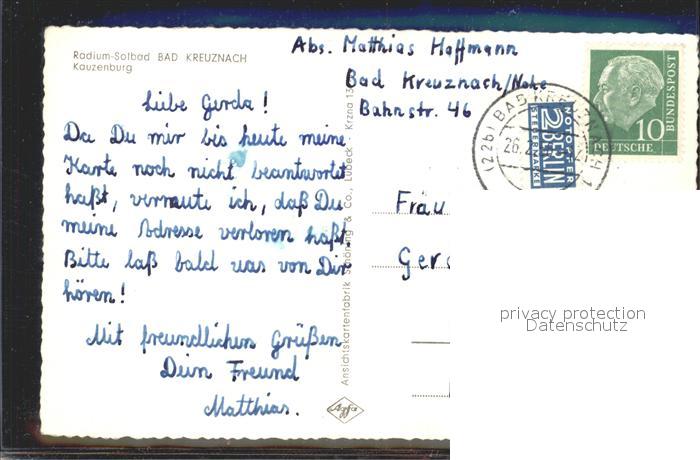 Radium-Solbad BAD KREUZNACH
Kauzenburg
Abs. Matthias Hoffmann
Bad Kreuznach/Nahe
Bahnstr. 46
Liebe Gerda!
Da Du mir bis heute meine
Karte noch nicht beantwortet
haßt, vermute ich, daß Du
meine Adresse verloren haßt.
Bitte laß bald was von Dir
hören!
Mit freundlichen Grüßen
Dein Freund
Matthias.
Ansichtskartenfabrik Schöning & Co., Lübeck
Krzna
Agfa
Fräu
Ger
(22b) BAD KREUZNACH
26.2
NOTOPFER
2 BERLIN
STEUERMARKE
10
DEUTSCHE
BUNDESPOST
privacy protection
Datenschutz